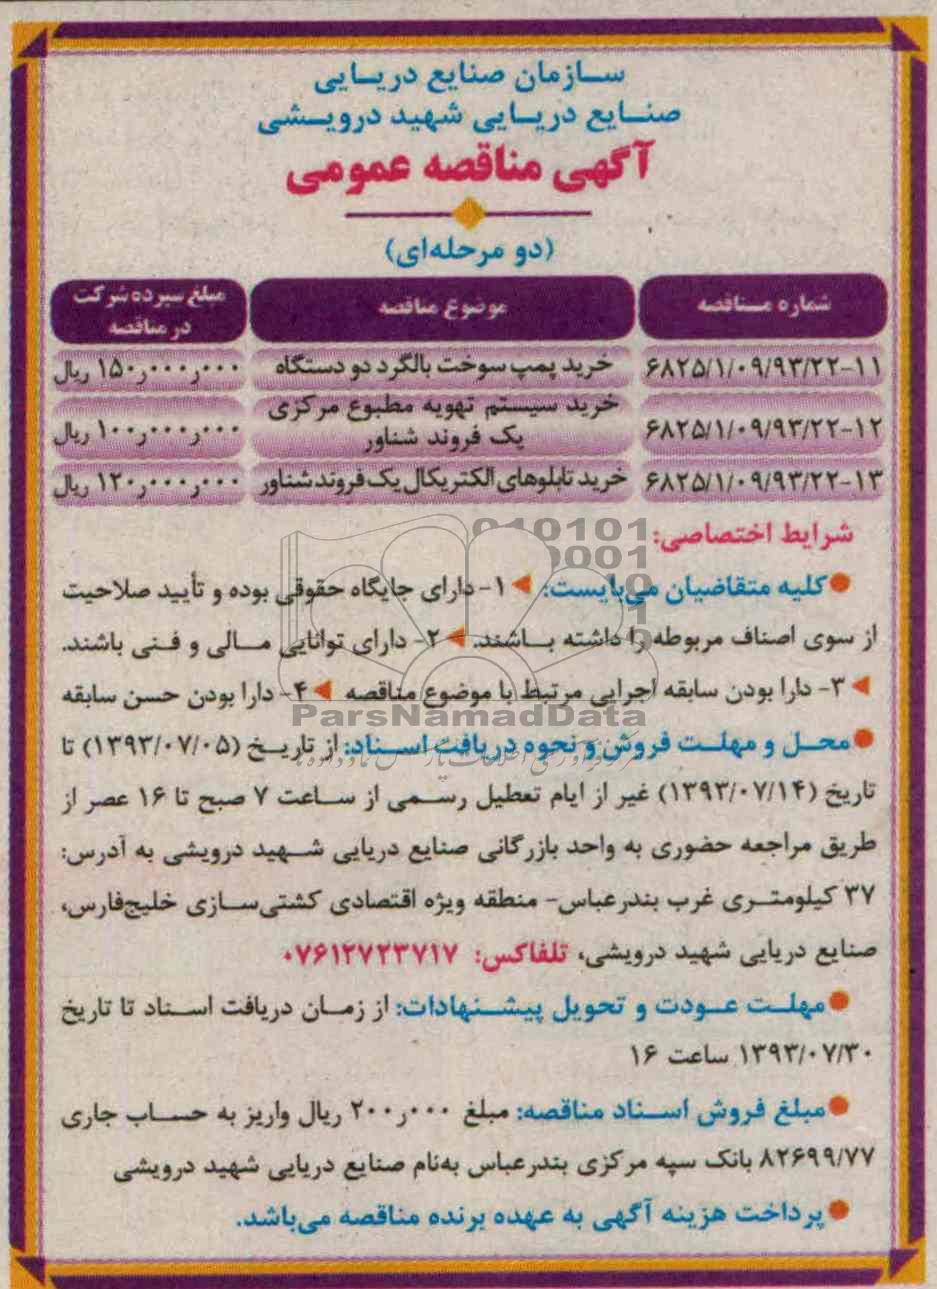 سازمان صنایع دریایی
صنایع دریایی شهید درویشی
آگهی مناقصه عمومی
(دو مرحله‌ای)
شماره مناقصه موضوع مناقصه مبلغ سپرده شرکت در مناقصه
۶۸۲۵/۱/۰۹/۹۳/۲۲-۱۱ خرید پمپ سوخت بالگرد دو دستگاه ۱۵۰٫۰۰۰٫۰۰۰ ریال
۶۸۲۵/۱/۰۹/۹۳/۲۲-۱۲ خرید سیستم تهویه مطبوع مرکزی یک فروند شناور ۱۰۰٫۰۰۰٫۰۰۰ ریال
۶۸۲۵/۱/۰۹/۹۳/۲۲-۱۳ خرید تابلوهای الکتریکال یک فروند شناور ۱۲۰٫۰۰۰٫۰۰۰ ریال
شرایط اختصاصی:
کلیه متقاضیان می‌بایست: ۱- دارای جایگاه حقوقی بوده و تأیید صلاحیت
از سوی اصناف مربوطه را داشته باشند. ۲- دارای توانایی مالی و فنی باشند.
۳- دارا بودن سابقه اجرایی مرتبط با موضوع مناقصه ۴- دارا بودن حسن سابقه
ParsNamadData
محل و مهلت فروش و نحوه دریافت اسناد: از تاریخ (۱۳۹۳/۰۷/۰۵) تا
تاریخ (۱۳۹۳/۰۷/۱۴) غیر از ایام تعطیل رسمی از ساعت ۷ صبح تا ۱۶ عصر از
طریق مراجعه حضوری به واحد بازرگانی صنایع دریایی شهید درویشی به آدرس:
۳۷ کیلومتری غرب بندرعباس- منطقه ویژه اقتصادی کشتی‌سازی خلیج‌فارس،
صنایع دریایی شهید درویشی، تلفاکس: ۰۷۶۱۲۷۲۳۷۱۷
مهلت عودت و تحویل پیشنهادات: از زمان دریافت اسناد تا تاریخ
۱۳۹۳/۰۷/۳۰ ساعت ۱۶
مبلغ فروش اسناد مناقصه: مبلغ ۲۰۰٫۰۰۰ ریال واریز به حساب جاری
۸۲۶۹۹/۷۷ بانک سپه مرکزی بندرعباس به‌نام صنایع دریایی شهید درویشی
پرداخت هزینه آگهی به عهده برنده مناقصه می‌باشد.